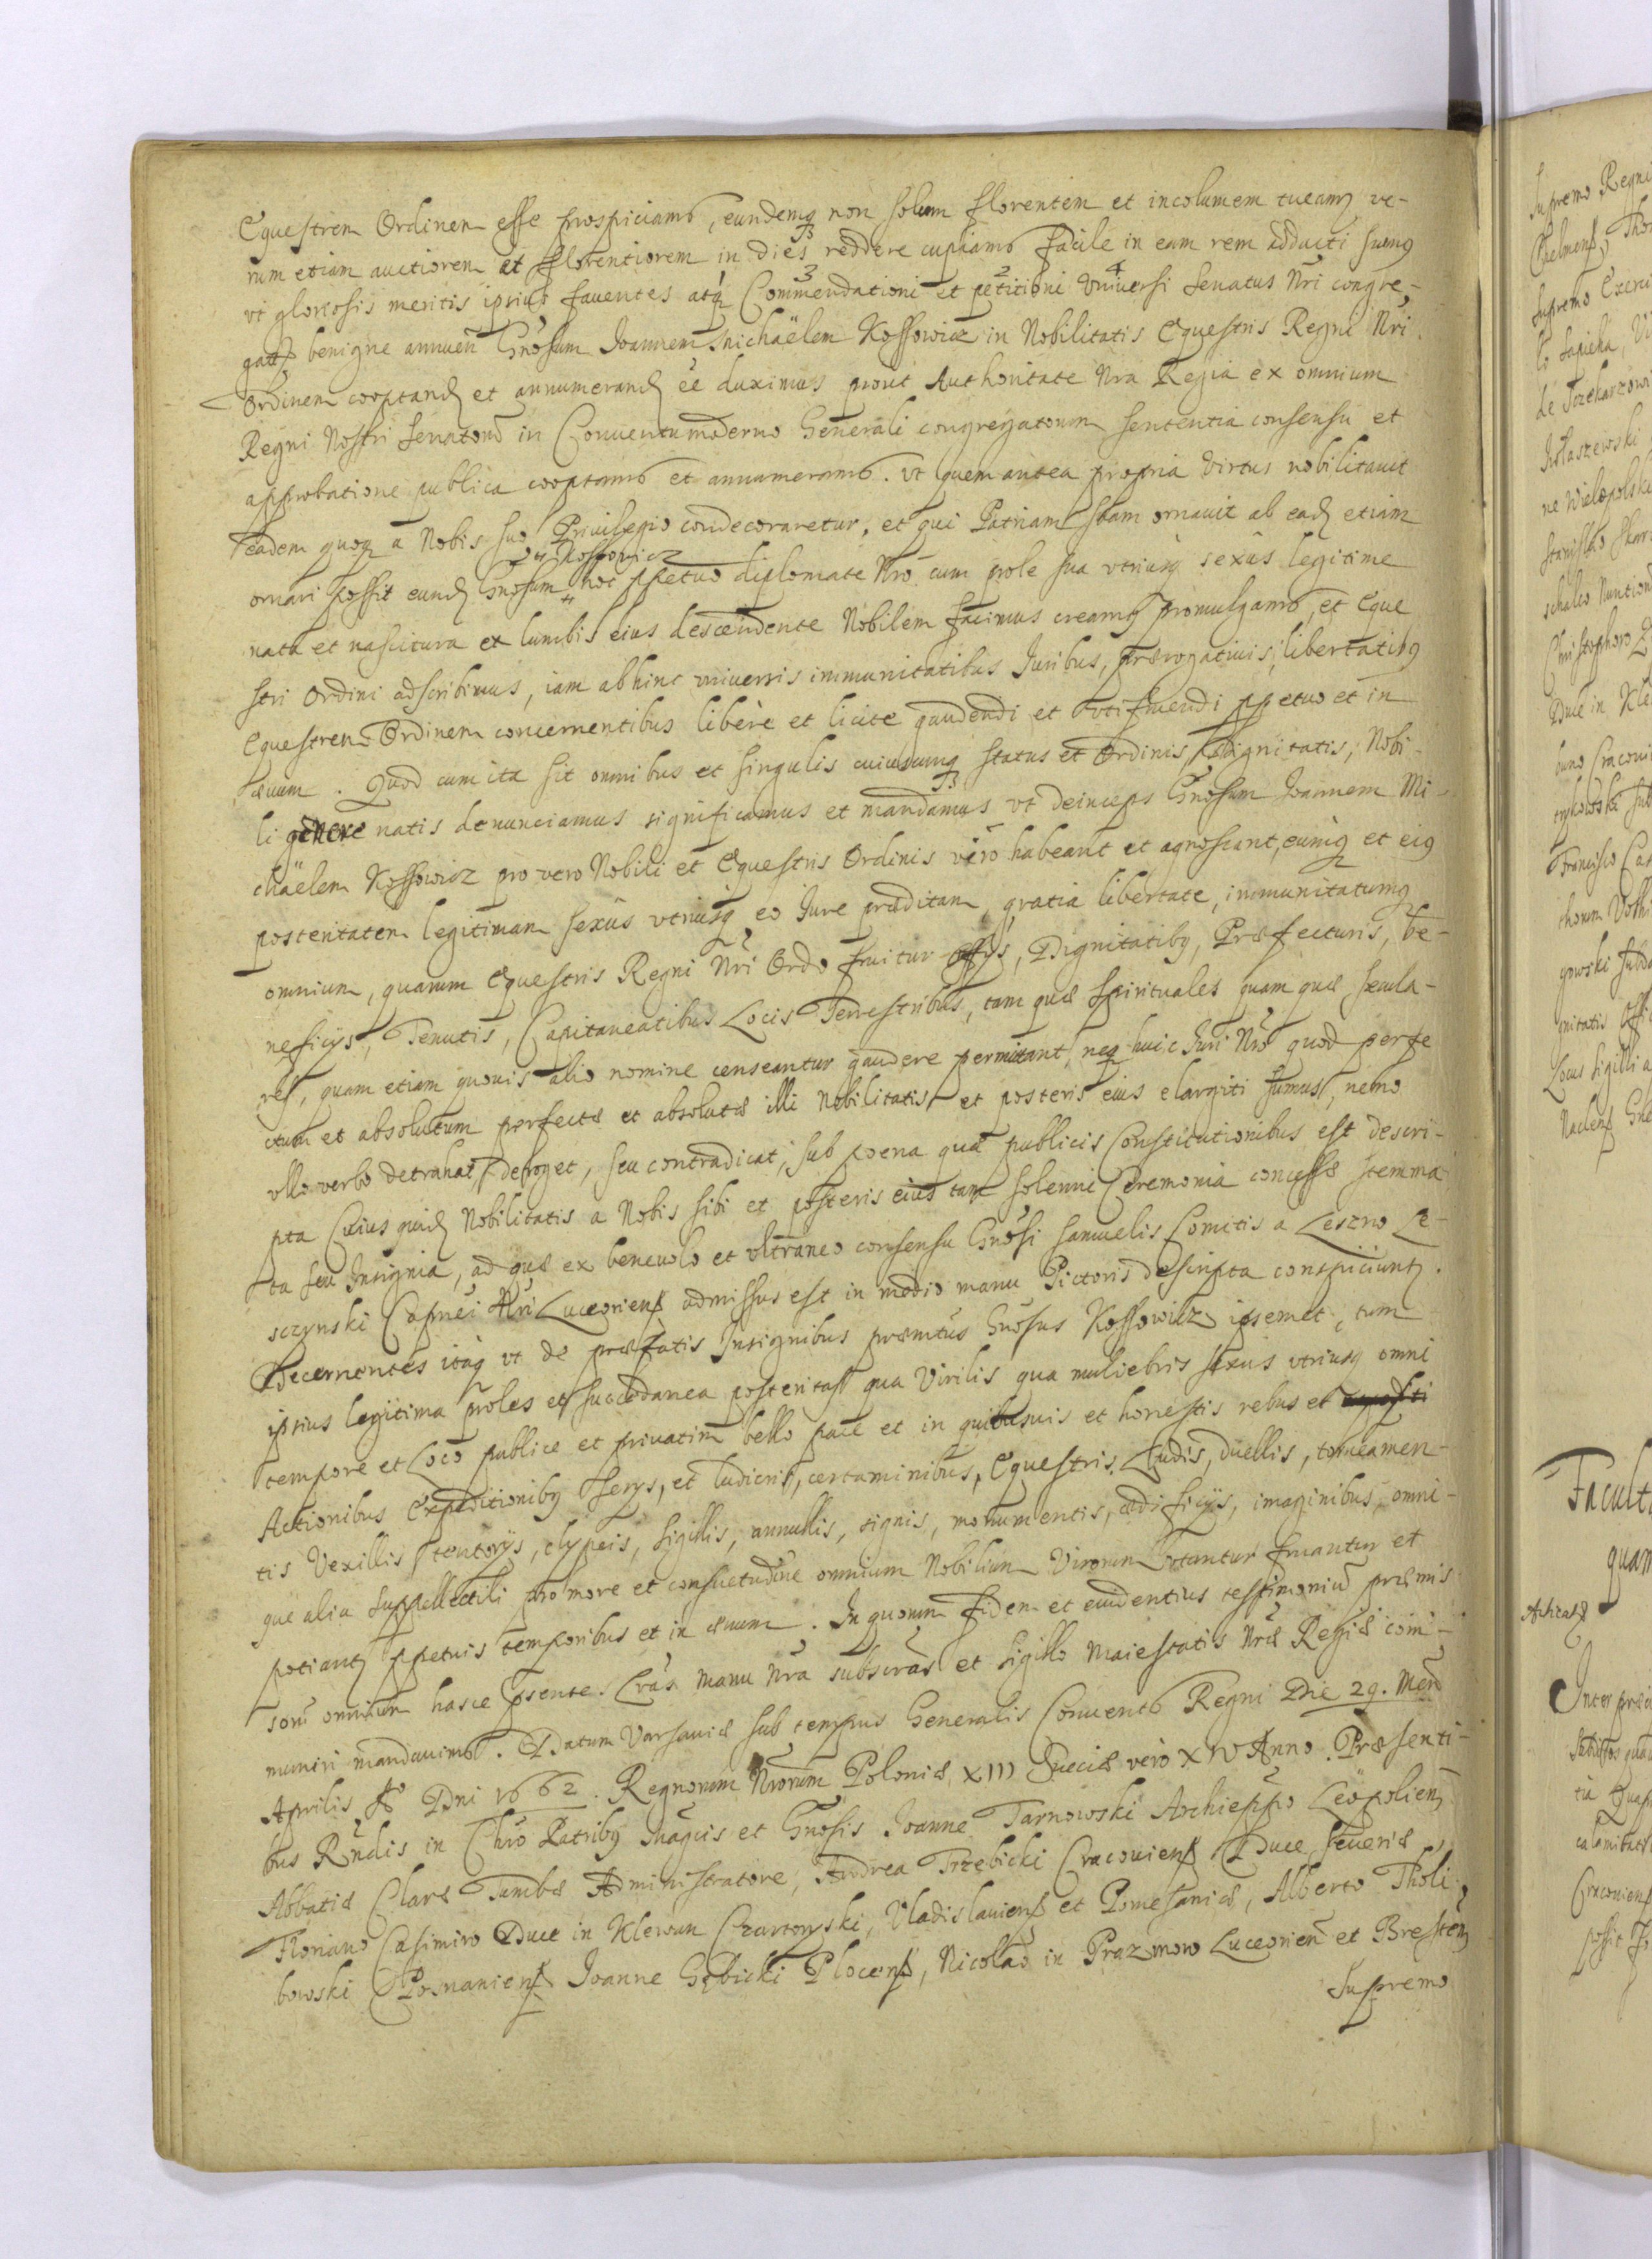 Equestrem Ordinem esse prospiciamus, eundemq non solum florentem et incolumem tueamur ve-
rum etiam auctiorem et florentiorem in dies reddere cupiamus facile in eam rem adducti sumus
vt gloriosis meritis ipsius fauentes atq Commendationi et petitioni vniuersi Senatus Nri congre-
gati benigne annuen Gnosum Joannem Michaëlem Kossowicz in Nobilitatis Equestris Regni Nri
Ordinem cooptand et annumerand ee duximus prout Authoritate Nra Regia ex omnium
Regni Nostri Senatorum in Conuentu moderno Generali congregatorum sententia consensu et
approbatione publica cooptamus et annumeramus. Vt quem antea propria Virtus nobilitauit
eadem quoq a Nobis suo Priuilegio condecoraretur, et qui Patriam suam ornauit ab ead etiam
Kossowicz
ornari possit eund Gnosum hoc ppetuo diplomate Nro cum prole sua vtriusq sexus legitime
nata et nascitura ex lumbis eius descendente Nobilem facimus creamus promulgamus, et Eque
stri Ordini adscribimus, iam abhinc vniuersis immunitatibus Juribus, prærogatiuis, libertatibus
Equestrem Ordinem concernentibus libere et licite gaudendi et vtifruendi ppetuo et in
æuum. Quod cum ita sit omnibus et singulis cuiuscunq status et Ordinis, dignitatis, Nobi-
li genere natis denunciamus significamus et mandamus vt deinceps Gnosum Joannem Mi-
chäelem Kossowicz pro vero Nobili et Equestris Ordinis viro habeant et agnoscant, eumq et eius
posteritatem legitimam sexus vtriusq eo Jure præditam, gratia libertate, immunitatumq
omnium, quarum Equestris Regni Nri Ordo fruitur Offys, Dignitatibus, Præfecturis, be-
neficys, Tenutis, Capitaneatibus Locis Terrestribus, tam quæ Spirituales quam quæ sæcula-
res, quam etiam quouis alio nomine censeantur gaudere permittant, neq huic Juri Nro quod perfe
ctum et absolutum perfectæ et absolutæ illi Nobilitatis et posteris eius elargiti sumus, nemo
vllo verbo detrahat, deroget, seu contradicat, sub poena quæ publicis Constitutionibus est descri-
pta Cuius quid Nobilitatis a Nobis sibi et posteris eius tam solenni Ceremonia concessæ stemma
ta seu Insignia, ad quæ ex beneuolo et vltraneo consensu Gnosi Samuelis Comitis a Leszno Le-
szczynski Capnei Nri Luceoriens admissus est in medio manu Pictoris descripta conspiciunt.
Decernentes itaq vt de præfatis Insignibus præmitus Gnosus Kossowicz ipsemet, tum
ipsius legitima proles et succedanea posteritas qua Virilis qua muliebris sexus vtriusq omni
tempore et Loco publice et priuatim bello pace et in quibusuis et honestis rebus et
Actionibus Expeditionibus Serys, et ludicris, certaminibus, Equestris, Ludis, duellis, torneamen-
tis Vexillis, tentorys, clypeis, sigillis, annullis, signis, monumentis, ædificys, imaginibus, omni-
que alia suppellectili pro more et consuetudine omnium Nobilium Virorum vtantur fruantur et
potiant ppetuis temporibus et in æuum. In quorum fidem et euidentius testimoniu præmis
soru omnium hasce psentes Lras manu Nra subscras et sigillo Maiestatis Nræ Regiæ com-
muniri mandauimus. Datum Varsauiæ sub tempus Generalis Conuentus Regni Die 29. Men
Aprilis Ao Dni 1662. Regnorum Nrorum Poloniæ XIII Sueciæ vero XIV Anno. Præsenti-
bus Rndis in Chro Patribus Magcis et Gnosis Joanne Tarnowski Archieppo Leopolien
Abbatiæ Claræ Tumbæ Administratore, Andrea Trzebicki Cracouiens Duce Seueriæ,
Floriano Casimiro Duce in Klewan Czartoryski, Vladislauiens et Pomesaniæ, Alberto Tholi
bowski Posnaniens Joanne Gębicki Plocens, Nicolao in Prazmow Luceorien et Bresten
Supremo